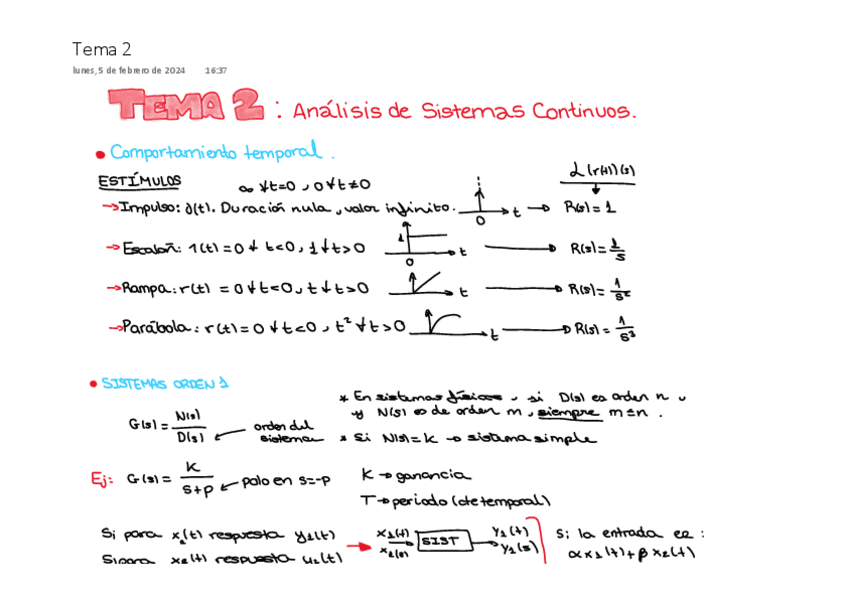 Tema 2
lunes, 5 de febrero de 2024 16:37
TEMA 2 : Análisis de Sistemas Continuos.
• Comportamiento temporal.
ESTÍMULOS
∞ ∀t=0, 0∀t≠0
L(r(t))(s)
→ Impulso: δ(t). Duración nula, valor infinito. 0 t → R(s) = 1
→ Escalón: 1(t) = 0 ∀ t<0, 1 ∀ t>0 1 0 t → R(s) = 1/s
→ Rampa: r(t) = 0 ∀ t<0, t ∀ t>0 t → R(s) = 1/s²
→ Parábola: r(t) = 0 ∀ t<0, t² ∀ t>0 t → R(s) = 1/s³
• SISTEMAS ORDEN 1
* En sistemas físicos, si D(s) es orden n
y N(s) es de orden m, siempre m≤n.
G(s) = N(s)/D(s) ← orden del sistema
* Si N(s) = K → sistema simple
Ej: G(s) = K/(s+p) ← polo en s=-p
K → ganancia
T → periodo (cte temporal)
Si para x₁(t) respuesta y₁(t)
Si para x₂(t) respuesta y₂(t)
x₁(t) x₂(s) SIST y₁(t) y₁(s)
Si la entrada es:
αx₁(t)+βx₂(t)